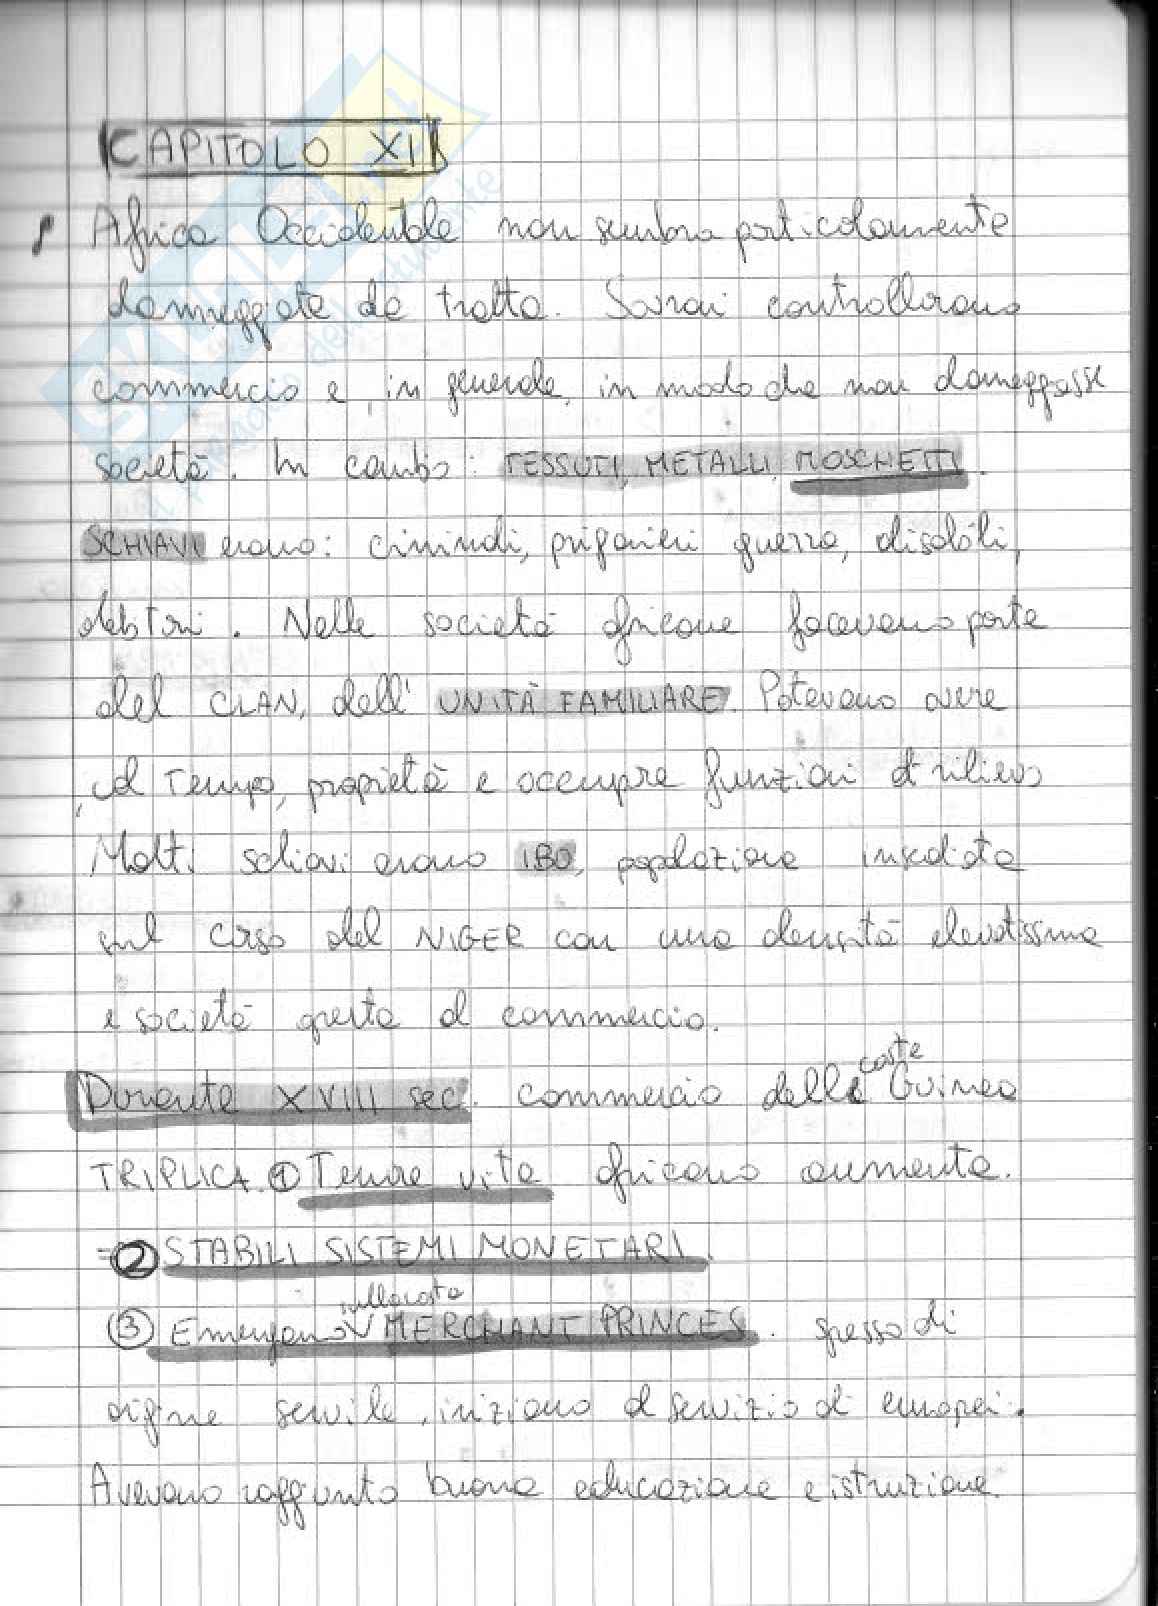 CAPITOLO XI
Africa Occidentale non sembra particolarmente
danneggiata da tratta. Sovrani controllavano
commercio e, in generale, in modo che non danneggiasse
società. In cambio: TESSUTI, METALLI, MOSCHETTI.
SCHIAVI erano: criminali, prigionieri guerra, disabili,
debitori. Nelle società africane facevano parte
del CLAN, dell'UNITÀ FAMILIARE. Potevano avere
, al tempo, proprietà e occupare funzioni di rilievo
Molti schiavi erano IBO, popolazione insediata
sul corso del NIGER con una densità elevatissima
e società aperta al commercio.
Durante XVIII sec. commercio della costa Guinea
TRIPLICA. ① Tenore vita africano aumenta.
=② STABILI SISTEMI MONETARI.
③ Emergono MERCHANT PRINCES. spesso di
origine servile, iniziano al servizio di europei.
Avevano raggiunto buona educazione e istruzione.
SKUOLA.net
il paradiso dello studente